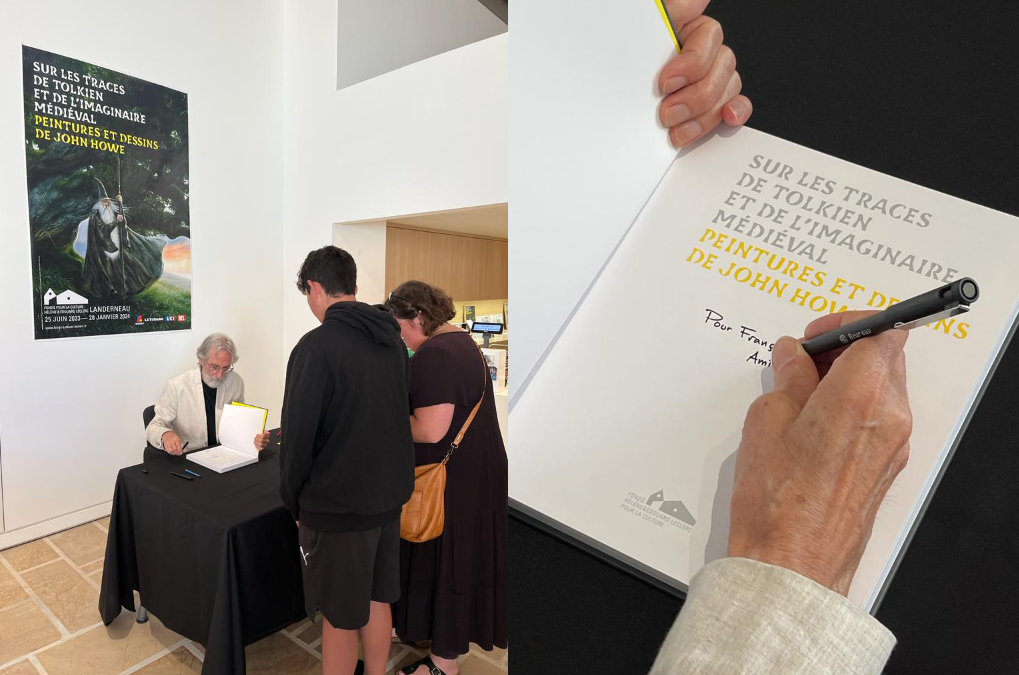 SUR LES TRACES
DE TOLKIEN
ET DE L'IMAGINAIRE
MÉDIÉVAL
PEINTURES ET DESSINS
DE JOHN HOWE
FONDS POUR LA CULTURE
HÉLÈNE & ÉDOUARD LECLERC
LANDERNEAU
25 JUIN 2023 — 28 JANVIER 2024
SUR LES TRACES
DE TOLKIEN
ET DE L'IMAGINAIRE
MÉDIÉVAL
PEINTURES ET DESSINS
DE JOHN HOWE
Pour Franç
Ami
FONDS
HÉLÈNE & ÉDOUARD LECLERC
POUR LA CULTURE